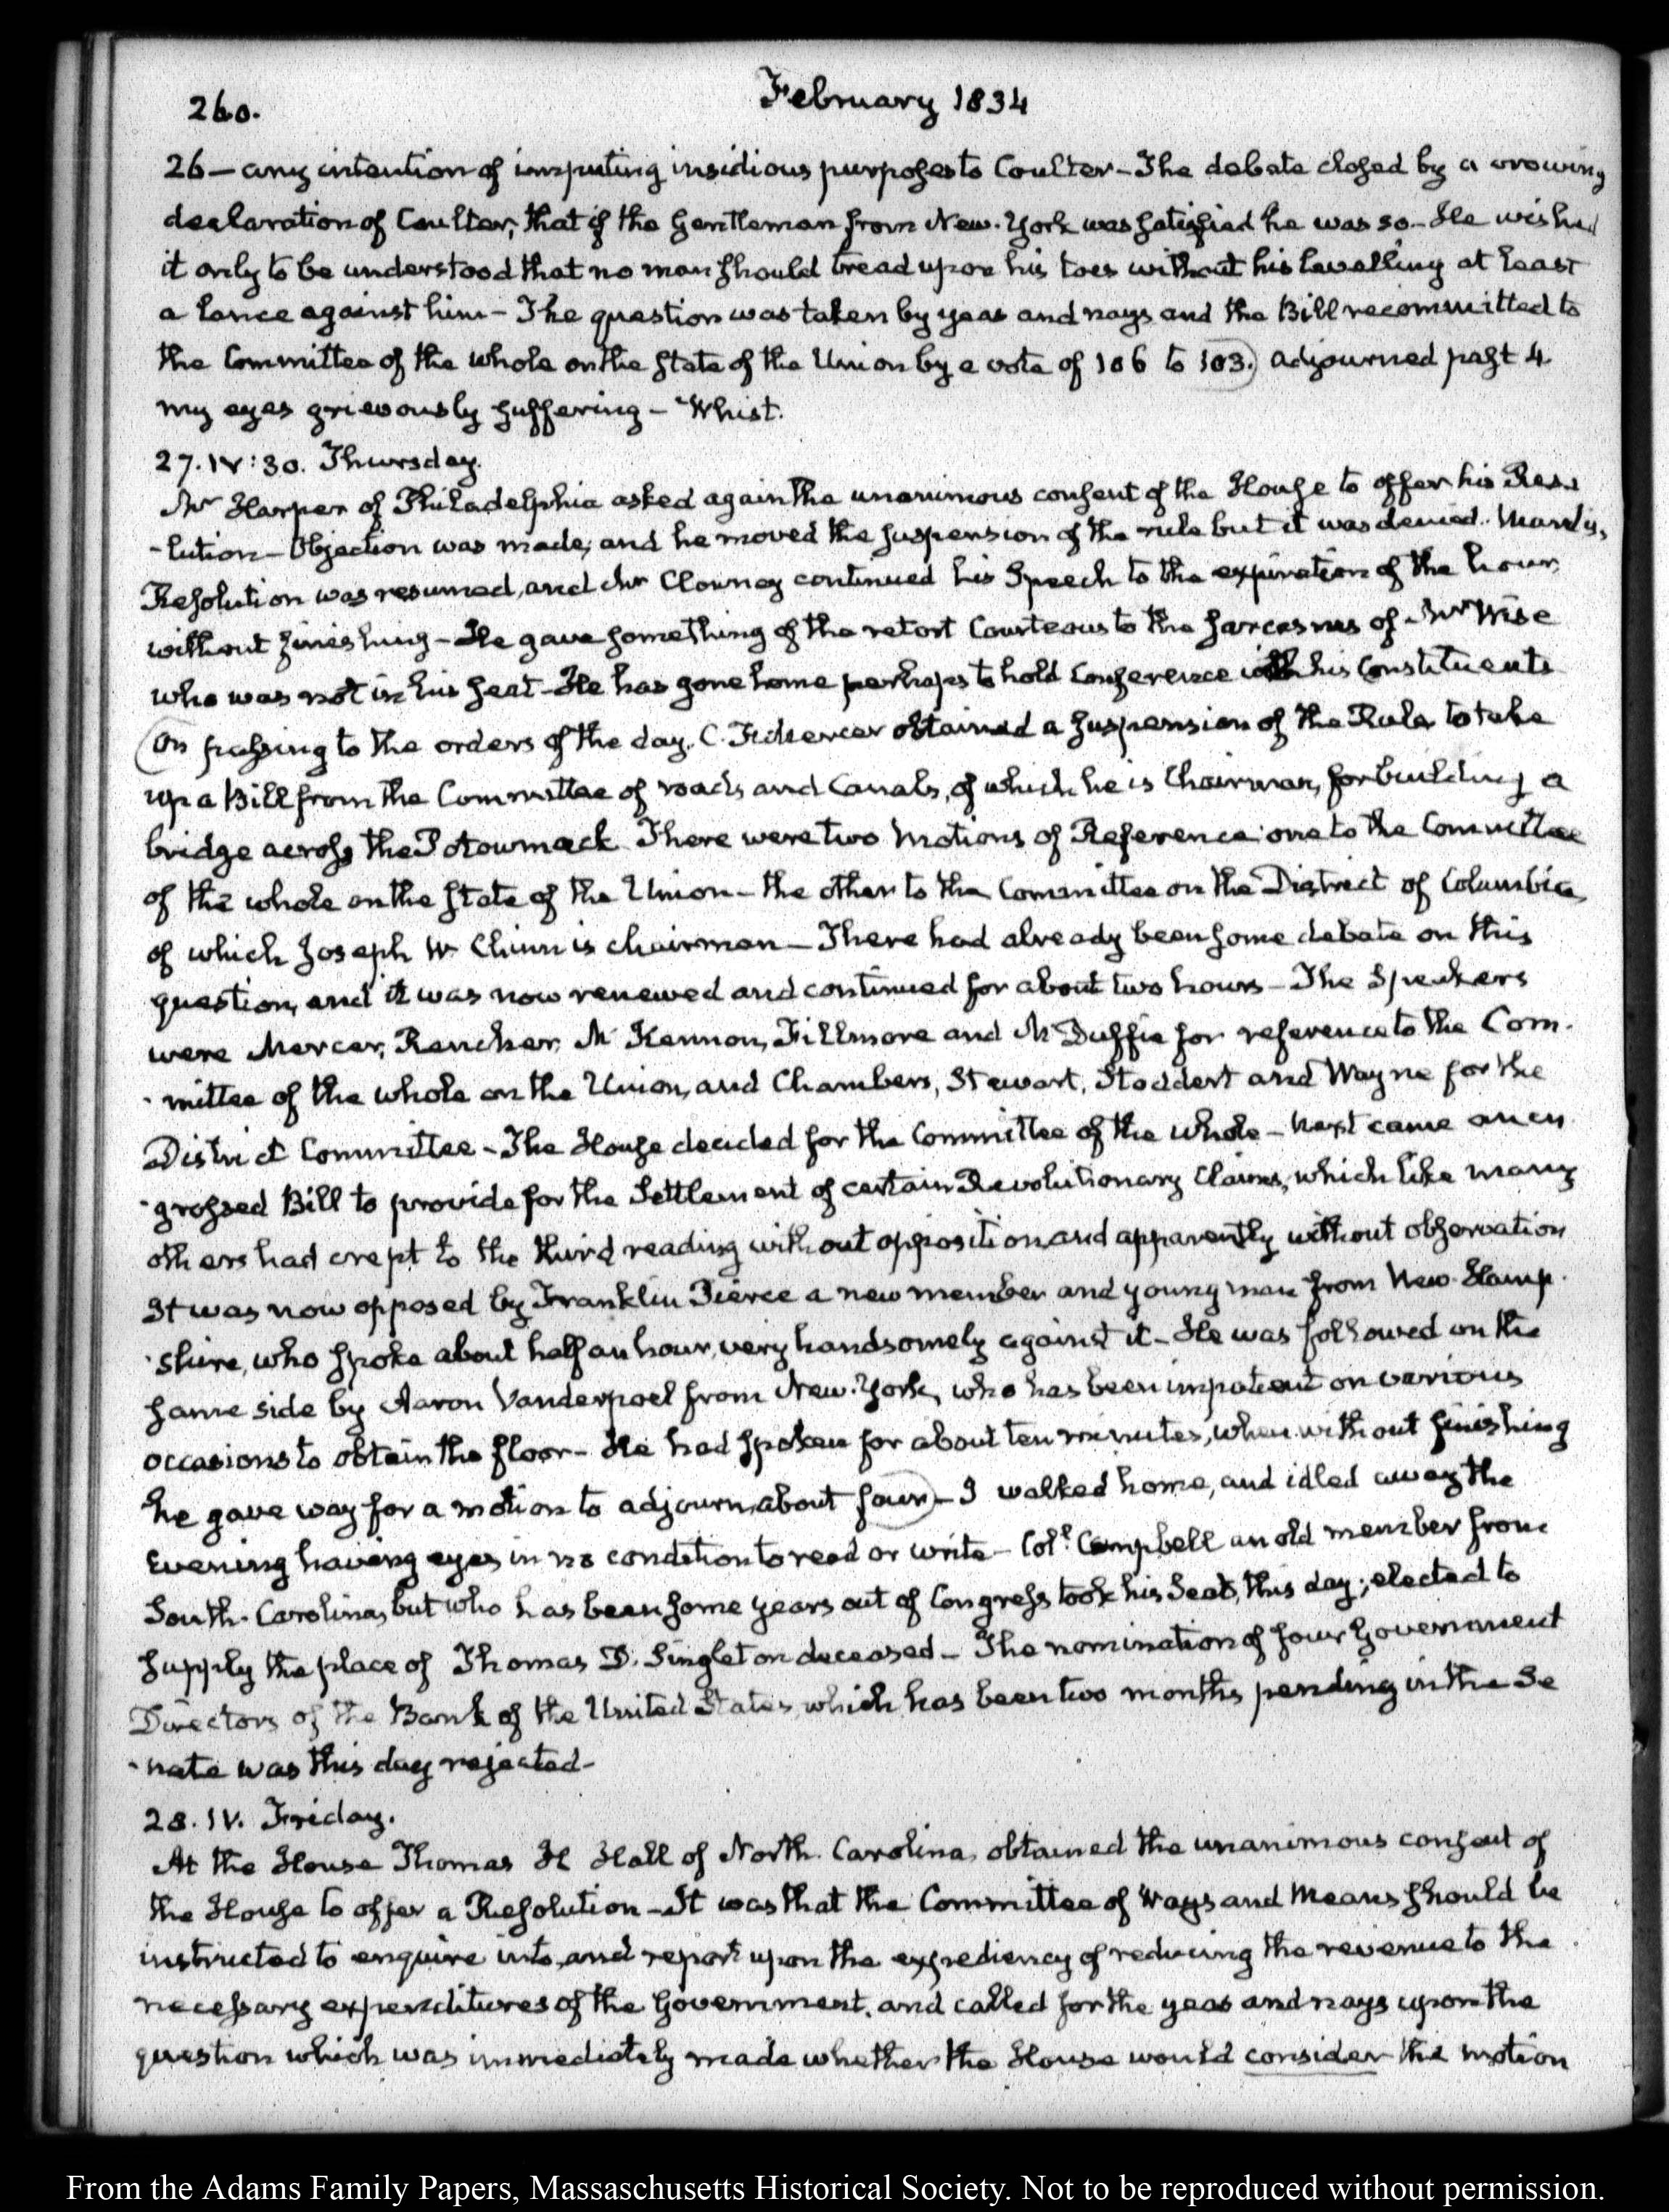 260.
February 1834
26 — any intention of imputing insidious purposes to Coulter — The debate closed by a crowing
declaration of Coulter, that if the Gentleman from New-York was satisfied he was so — He wished
it only to be understood that no man should tread upon his toes without his levelling at least
a lance against him — The question was taken by yeas and nays and the Bill recommitted to
the Committee of the whole on the state of the Union by a vote of 106 to 103. adjourned past 4
my eyes grievously suffering — Whist.
27. IV:30. Thursday.
Mr Harper of Philadelphia asked again the unanimous consent of the House to offer his Reso
-lution — Objection was made, and he moved the suspension of the rule but it was denied. Mardis's
Resolution was resumed, and Mr Clowney continued his Speech to the expiration of the hour,
without finishing — He gave something of the retort Courteous to the sarcasms of Mr Wise
who was not in his seat — He has gone home perhaps to hold Conference with his Constituents
On passing to the orders of the day, C. F. Mercer obtained a suspension of the Rule to take
up a Bill from the Committee of roads and Canals, of which he is Chairman, for building a
bridge across the Potowmack There were two Motions of Reference one to the Committee
of the whole on the state of the Union — the other to the Committee on the District of Columbia,
of which Joseph W. Chinn is chairman — There had already been some debate on this
question, and it was now renewed and continued for about two hours — The Speakers
were Mercer, Rencher, McKennon, Fillmore and McDuffie for reference to the Com-
-mittee of the whole on the Union, and Chambers, Stewart, Stoddert and Wayne for the
District Committee — The House decided for the Committee of the whole — Next came an en
-grossed Bill to provide for the Settlement of certain Revolutionary Claims, which like many
others had crept to the third reading without opposition and apparently without observation
It was now opposed by Franklin Pierce a new member and young man from New-Hamp-
-shire, who spoke about half an hour, very handsomely against it — He was followed on the
same side by Aaron Vanderpoel from New-York, who has been impatient on various
occasions to obtain the floor — He had spoken for about ten minutes, when without finishing
he gave way for a motion to adjourn, about four — I walked home, and idled away the
Evening having eyes in no condition to read or write — Coll. Campbell an old member from
South-Carolina, but who has been some years out of Congress took his Seat, this day; elected to
supply the place of Thomas D. Singleton deceased — The nomination of four Government
Directors of the Bank of the United States, which has been two months pending in the Se
-nate was this day rejected —
28. IV. Friday.
At the House Thomas H Hall of North-Carolina, obtained the unanimous consent of
the House to offer a Resolution — It was that the Committee of Ways and Means should be
instructed to enquire into, and report upon the expediency of reducing the revenue to the
necessary expenditures of the Government. and called for the yeas and nays upon the
question which was immediately made whether the House would consider the motion
From the Adams Family Papers, Massachusetts Historical Society. Not to be reproduced without permission.